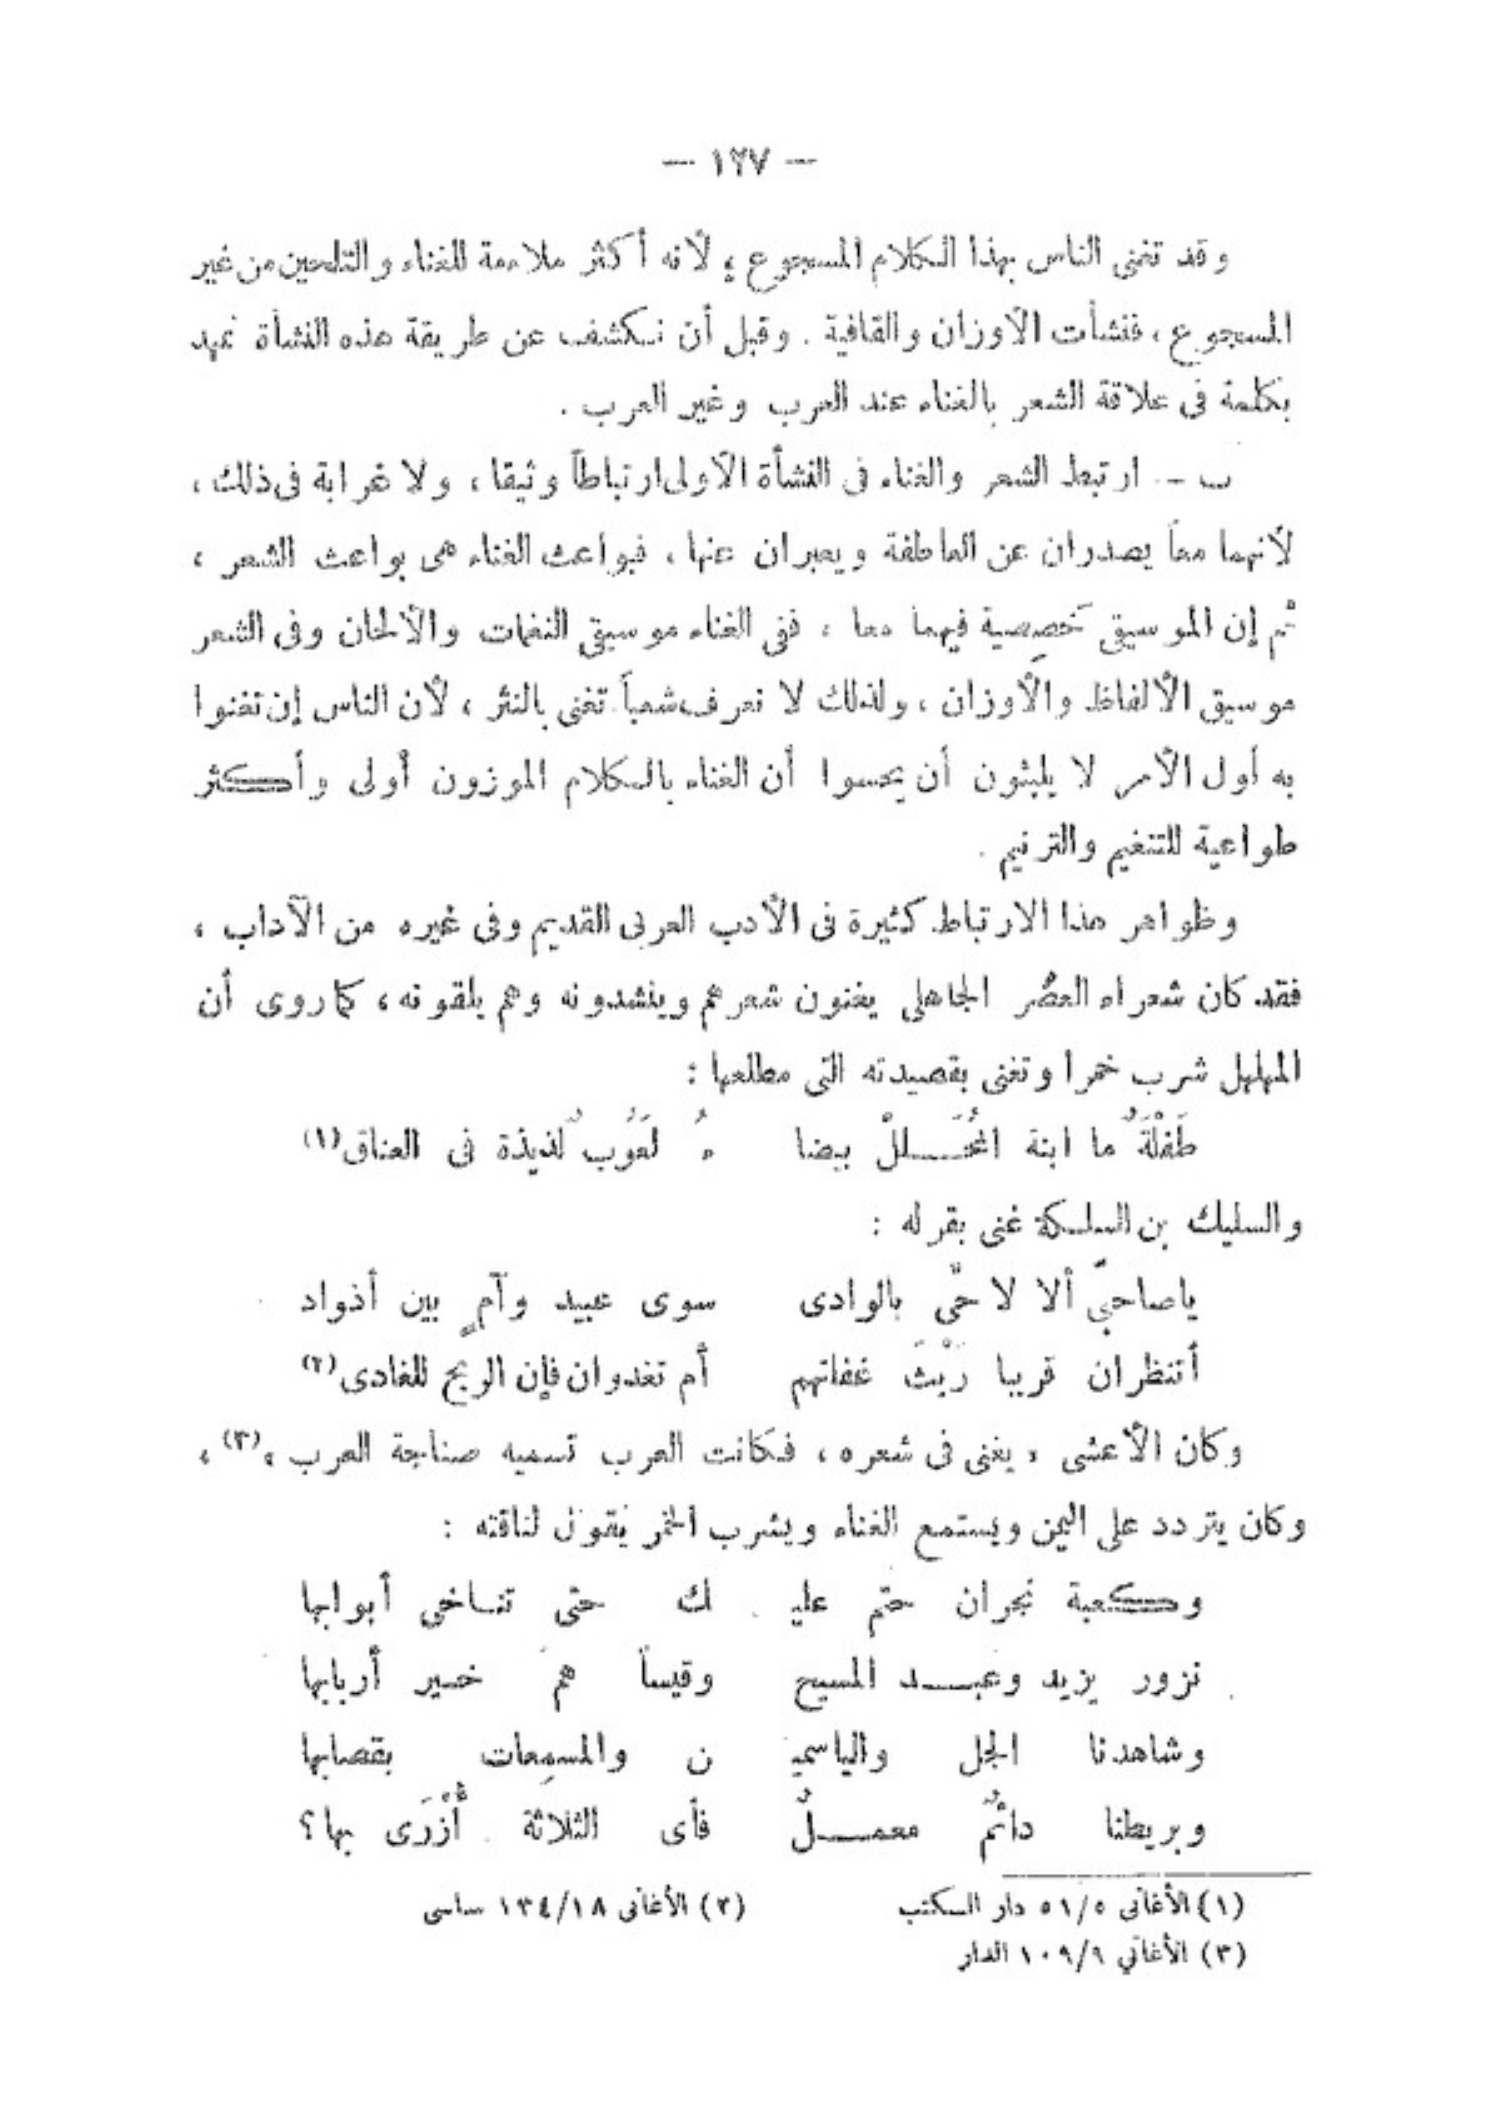 — ١٢٧ —
وقد تغنى الناس بهذا الكلام المسجوع ، لأنه أكثر ملاءمة للغناء والتلحين من غير
المسجوع ، فنشأت الأوزان والقافية . وقبل أن نكشف عن طريقة هذه النشأة نمهد
بكلمة فى علاقة الشعر بالغناء عند العرب وغير العرب .
ب - ارتبط الشعر والغناء فى النشأة الأولى ارتباطاً وثيقا ، ولا غرابة فى ذلك ،
لأنهما معاً يصدران عن العاطفة ويعبران عنها ، فبواعث الغناء هى بواعث الشعر ،
ثم إن الموسيقى خَصِيصية فيهما معا ، ففى الغناء موسيقى النغمات والألحان وفى الشعر
موسيقى الألفاظ والأوزان ، ولذلك لا نعرف شعباً تغنى بالنثر ، لأن الناس إن تغنوا
به أول الأمر لا يلبثون أن يحسوا أن الغناء بالكلام الموزون أولى وأكثر
طواعية للتنغيم والترنيم .
وظواهر هذا الارتباط كثيرة فى الأدب العربى القديم وفى غيره من الآداب ،
فقد كان شعراء العصر الجاهلى يغنون شعرهم وينشدونه وهم يلقونه ، كما روى أن
المهلهل شرب خمرا وتغنى بقصيدته التى مطلعها :
طَفْلَةٌ ما ابنة المُحَـلَّلْ بيضا ءُ لَعُوبٌ لذيذة فى العناق (١)
والسليك بن السلكة غنى بقوله :
ياصاحبىّ ألا لا حىّ بالوادى سوى عبيد وآمٍ بين أذواد
أتنظران قريبا رَيْثَ غفلتهم أم تغدوان فإن الربح للغادى (٢)
وكان الأعشى « يغنى فى شعره ، فكانت العرب تسميه صناجة العرب » (٣) ،
وكان يتردد على اليمن ويستمع الغناء ويشرب الخمر يقول لناقته :
وكعبة نجران حتم عليـ ـك حتى تناخى أبوابها
نزور يزيد وعبـد المسيح وقيساً هم خير أربابها
وشاهدنا الجل والياسميـ ن والمسمِعات بقصابها
وبربطنا دائمٌ معمـلٌ فأى الثلاثة أُزْرَى بها ؟
(١) الأغانى ٥١/٥ دار الكتب (٢) الأغانى ١٣٤/١٨ ساسى
(٣) الأغانى ١٠٩/٩ الدار